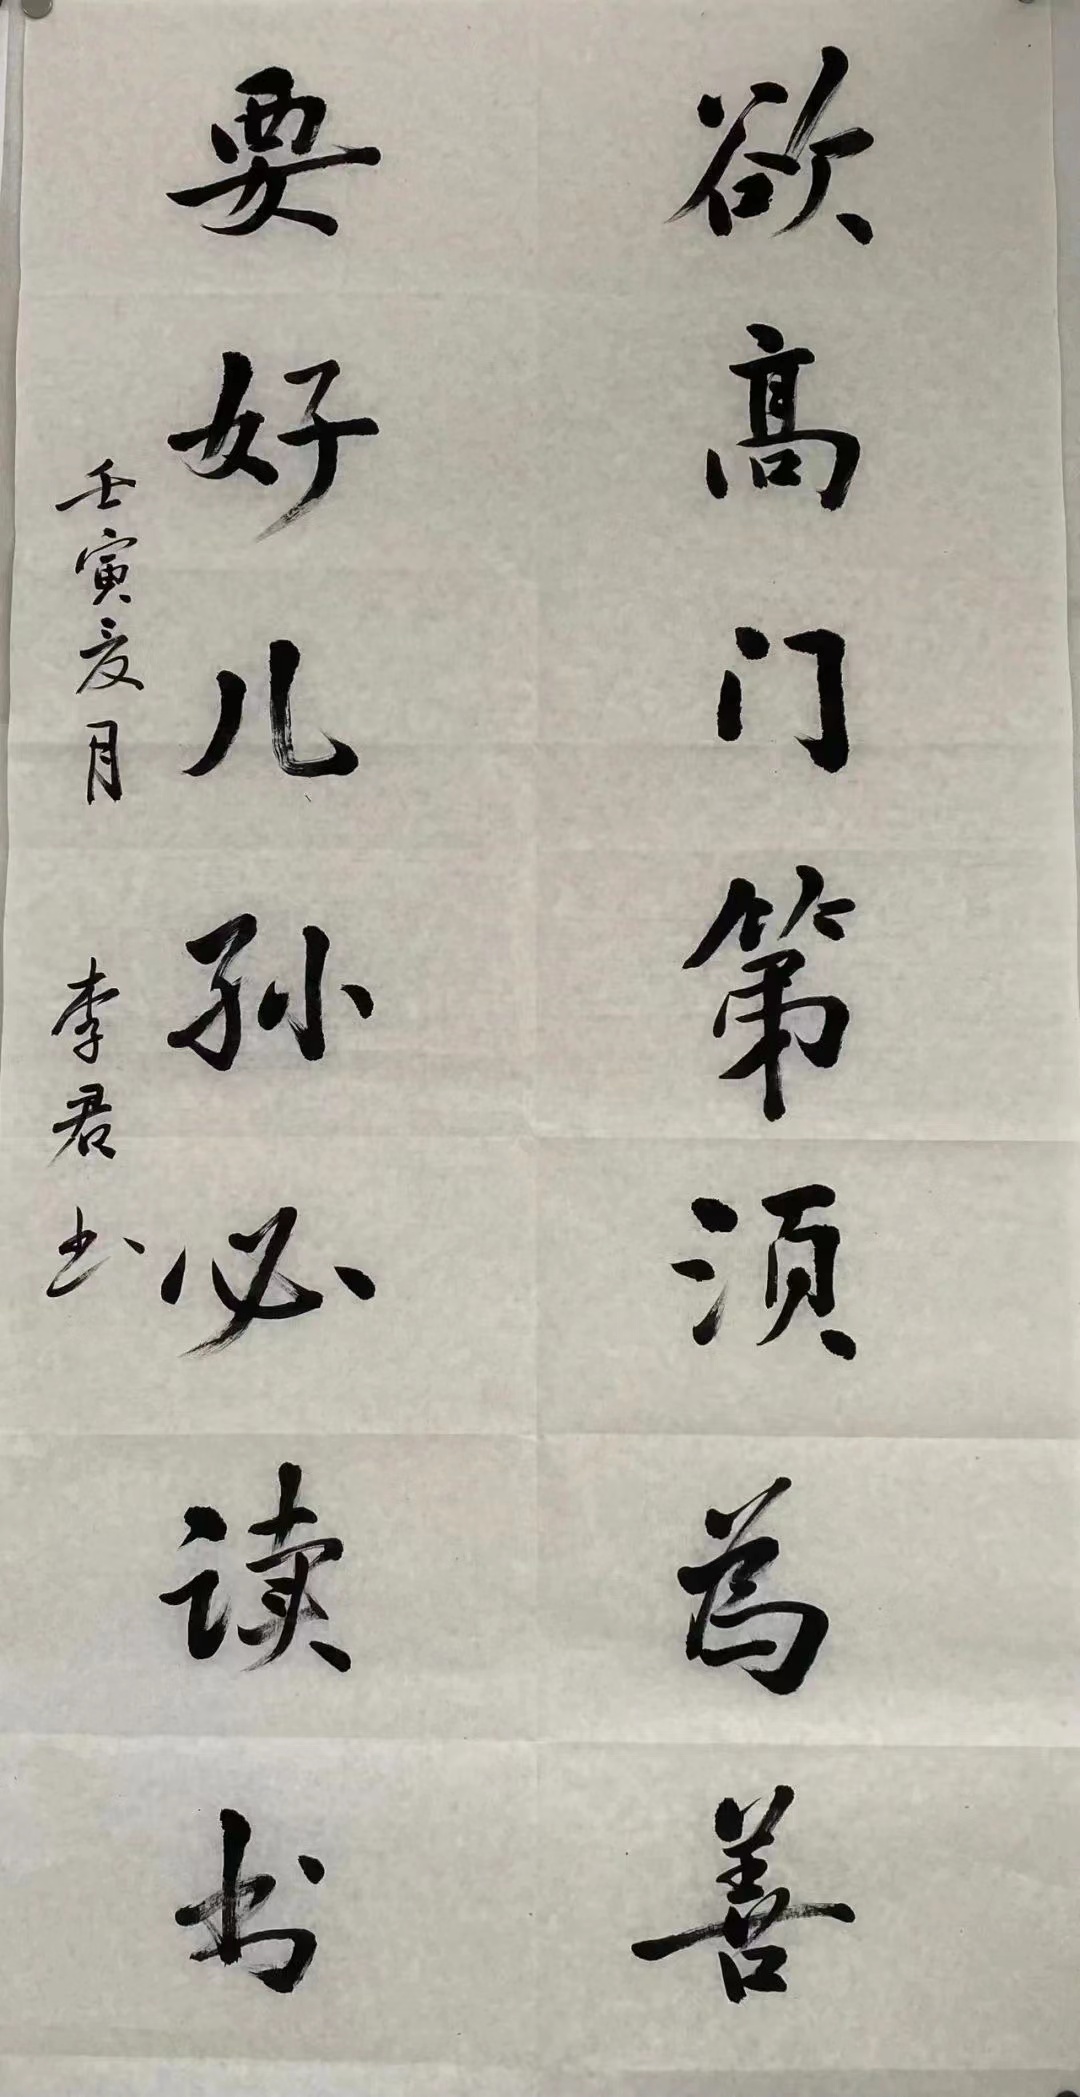 欲高门第须为善
要好儿孙必读书
壬寅夏月 李君书